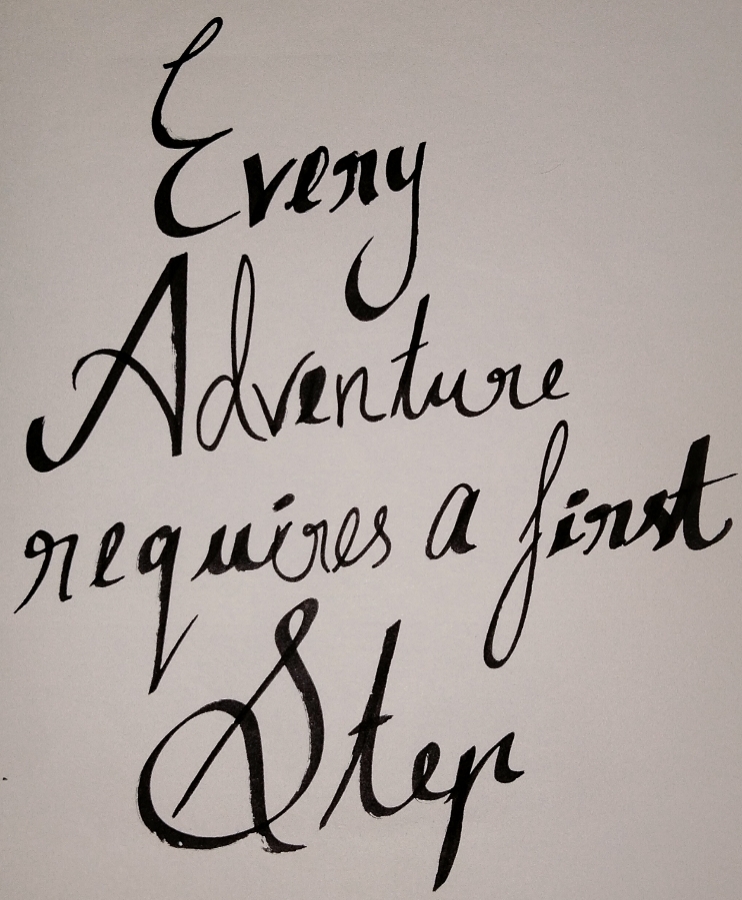 Every
Adventure
requires a first
Step